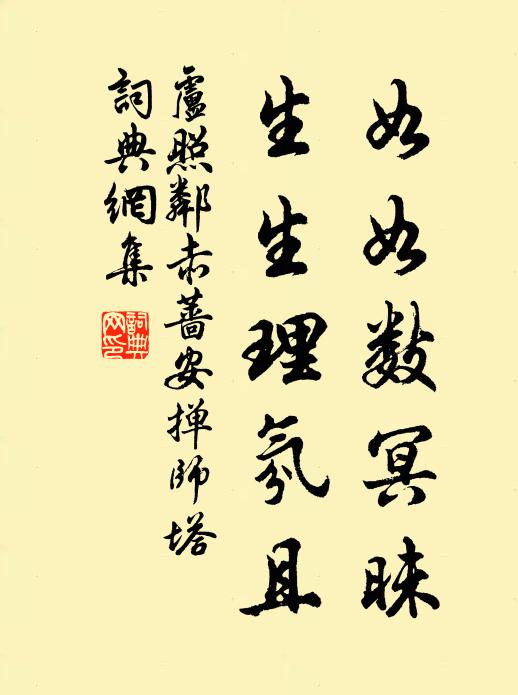 如如數冥昧
生生理氛且
盧照鄰赤蔷安掸師塔
詞典網集
詞典
网印